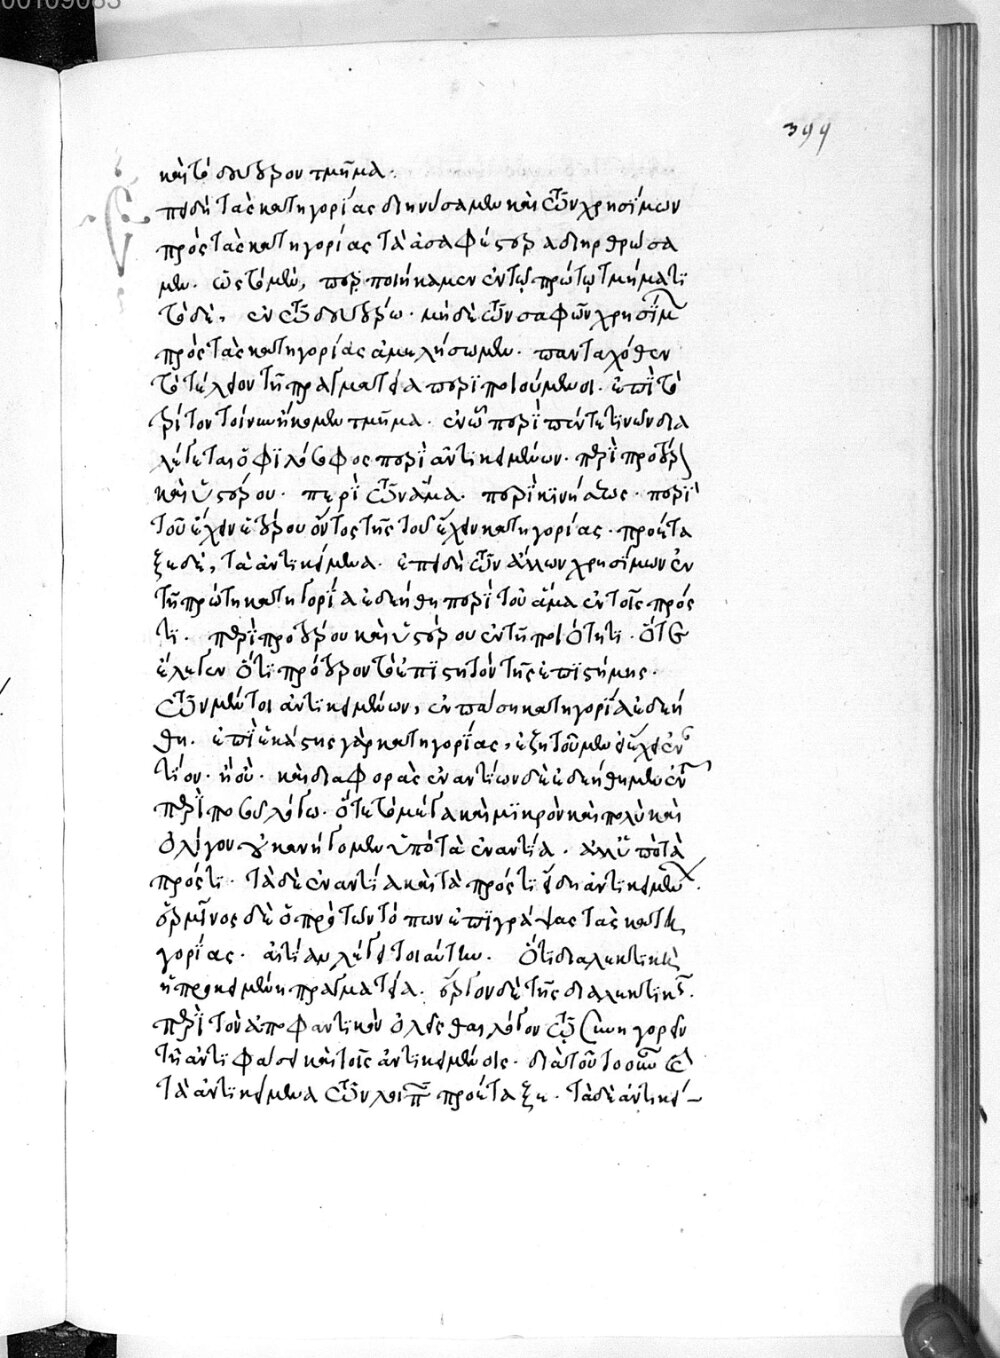 00109083
399
καὶ τὸ δεύτερον τμῆμα.
Ἐπειδὴ τὰς κατηγορίας διηνύσαμεν καὶ τῶν χρησίμων
πρὸς τὰς κατηγορίας τὰ ἀσαφέστερα διηρθρώσα
μεν. ὧς τὸ μὲν, πεποιήκαμεν ἐν τῷ πρώτῳ τμήματι
τὸ δὲ, ἐν τῷ δευτέρῳ. μηδὲ τῶν σαφῶν χρησίμων
πρὸς τὰς κατηγορίας ἀμελήσωμεν. πανταχόθεν
τὸ τέλειον τῇ πραγματεία περιποιούμενοι. ἐπὶ τὸ
τρίτον τοίνυν ἥκομεν τμῆμα. ἐν ᾧ περὶ πέντε τινῶν δια
λέγεται ὁ φιλόσοφος περὶ ἀντικειμένων. περὶ προτέρου
καὶ ὑστέρου. περὶ τῶν ἅμα. περὶ κινήσεως. περὶ
τοῦ ἔχειν ἑτέρου ὄντος τῆς τοῦ ἔχειν κατηγορίας. προέτα
ξε δὲ, τὰ ἀντικείμενα. ἐπειδὴ τῶν ἄλλων χρησίμων ἐν
τῇ πρώτη κατηγορία ἐδεήθη περὶ τοῦ ἅμα ἐν τοῖς πρός
τι. περὶ προτέρου καὶ ὑστέρου ἐν τῇ ποιότητι. ὅτε
ἔλεγεν ὅτι πρότερον τὸ ἐπιστητὸν τῆς ἐπιστήμης.
τῶν μέντοι ἀντικειμένων, ἐν πάση κατηγορία ἐδεή
θη. ἐπὶ ἑκάστης γὰρ κατηγορίας, ἐζητοῦμεν εἰ ἔχει ἐναν
τίον. ἢ οὔ. καὶ διαφορᾶς ἐναντίων δὲ ἐδεήθημεν ἐν τῷ
περὶ ποσοῦ λόγω. ὅτε τὸ μέγα καὶ μικρὸν καὶ πολὺ καὶ
ὀλίγον οὐκ ἀνήγομεν ὑπὸ τὰ ἐναντία. ἀλλ' ὑπὸ τὰ
πρός τι. τὰ δὲ ἐναντία καὶ τὰ πρός τι εἴδη ἀντικειμένων.
ἑρμῖνος δὲ ὁ πρὸ τῶν τόπων ἐπιγράψας τὰς κατη
γορίας. αἰτίαν λέγει τοιαύτην. ὅτι διαλεκτικὴ
ἡ προκειμένη πραγματεία. ἔργον δὲ τῆς διαλεκτικῆς.
περὶ τὸν ἀποφαντικὸν ὁλεῖσθαι λόγον τῷ συνηγορεῖν
τῇ ἀντιφάσει καὶ τοῖς ἀντικειμένοις. διὰ τοῦτο οὖν καὶ
τὰ ἀντικείμενα τῶν λοιπῶν προέταξε. τὰ δὲ ἀντικεί-